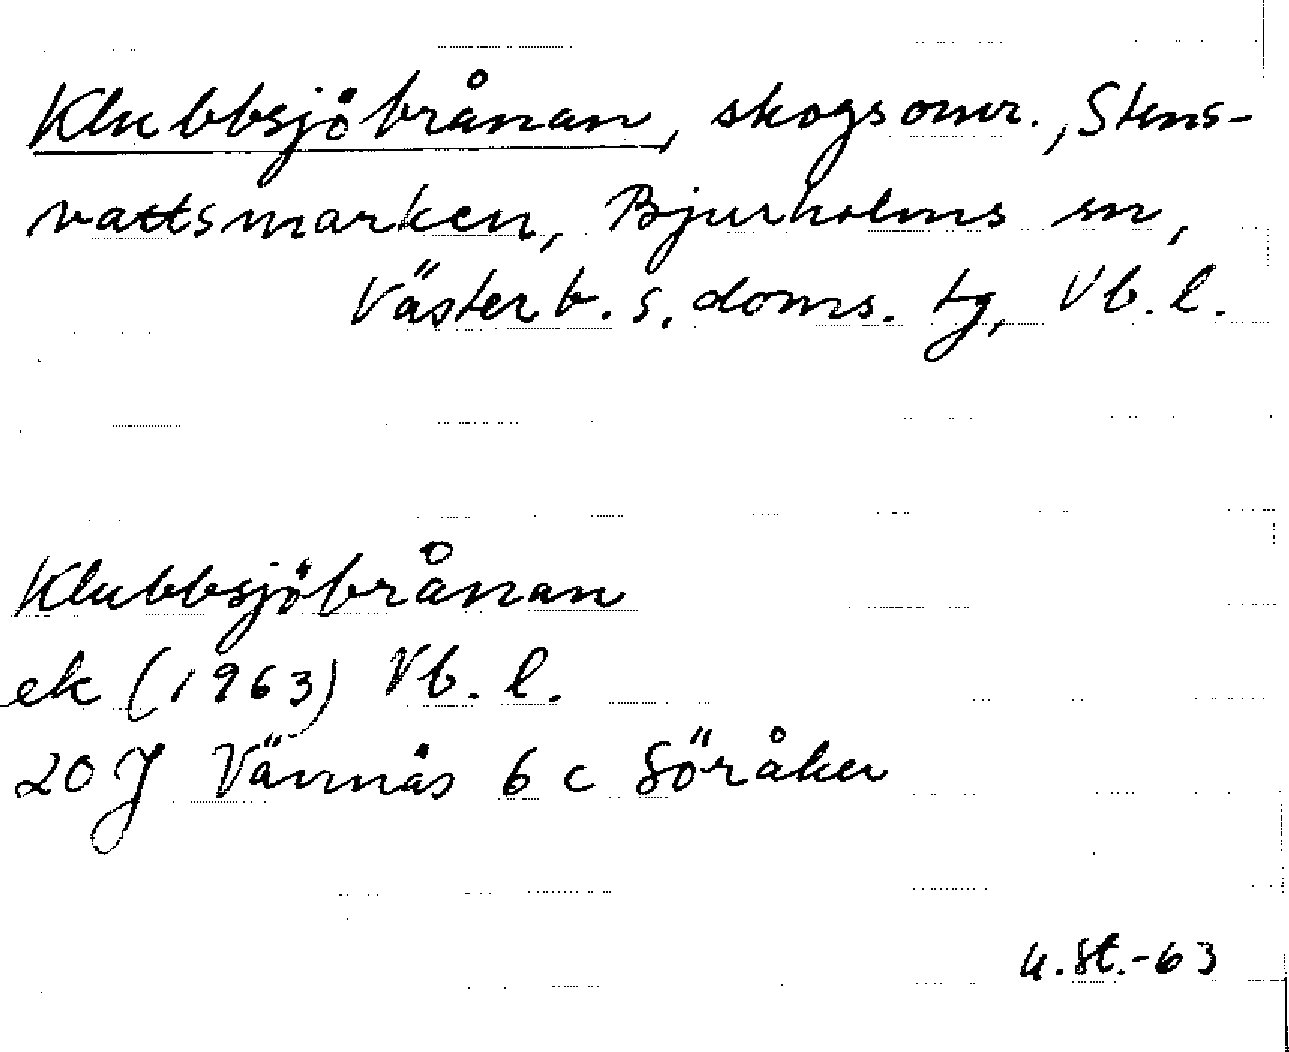 Klubbsjöbrånan, skogsomr., Stens-
vattsmarken, Bjurholms sn,
Västerb. s. doms. tg, Vb. l.
Klubbsjöbrånan
ek (1963) Vb. l.
20 J Vännäs 6 c Söråker
u. St. -63